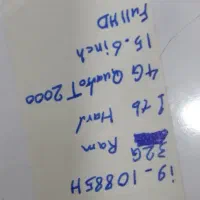 i9-10885H
32G Ram
1 tb Hard
4G Quadro T2000
15.6inch
FullHD